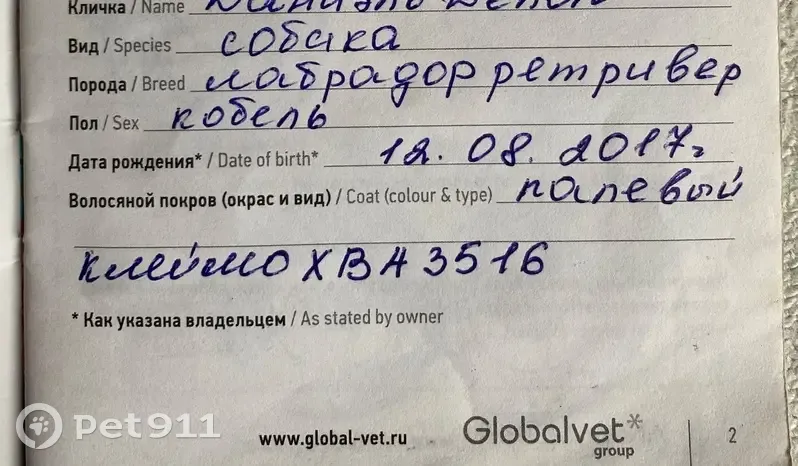 Кличка / Name
Вид / Species собака
Порода / Breed лабрадор ретривер
Пол / Sex кобель
Дата рождения* / Date of birth* 12.08.2017г.
Волосяной покров (окрас и вид) / Coat (colour & type) палевый
клеймо ХВА 3516
* Как указана владельцем / As stated by owner
Pet911
www.global-vet.ru
Globalvet*
group
2